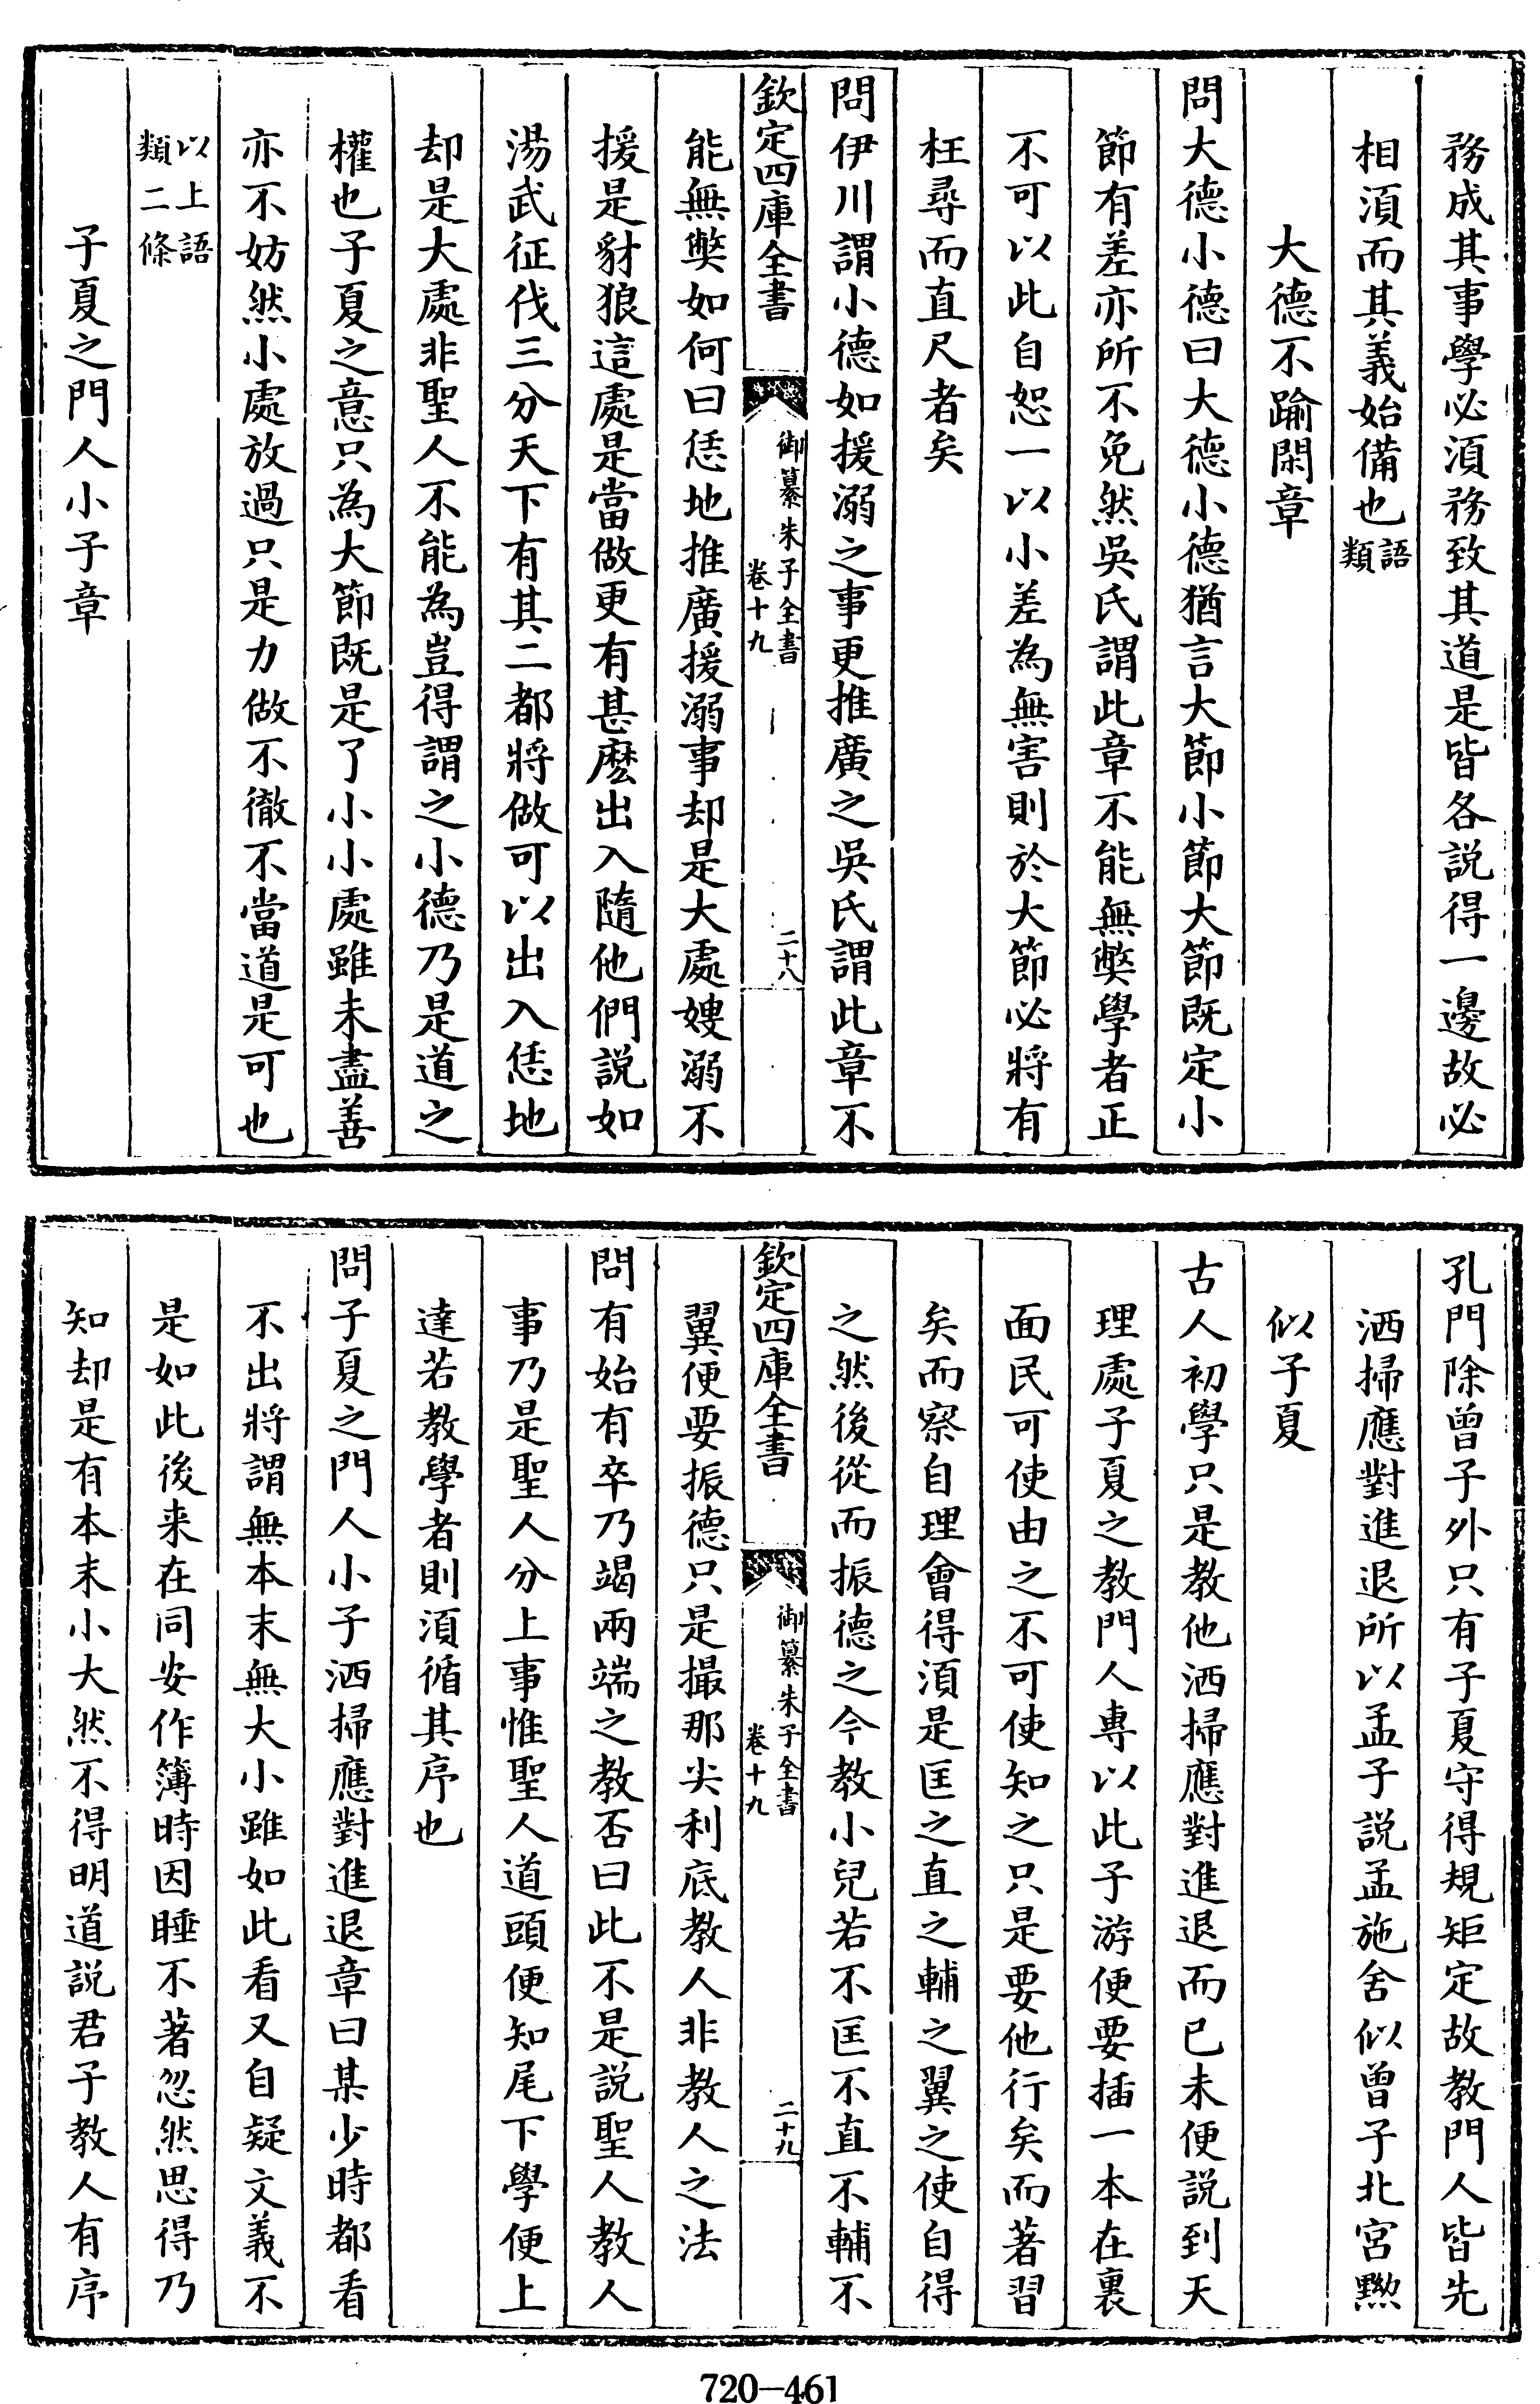 務成其事學必須務致其道是皆各説得一邊故必
相須而其義始備也語類
大德不踰閑章
問大德小德曰大德小德猶言大節小節大節既定小
節有差亦所不免然吳氏謂此章不能無弊學者正
不可以此自恕一以小差為無害則於大節必將有
枉尋而直尺者矣
問伊川謂小德如援溺之事更推廣之吳氏謂此章不
欽定四庫全書
御纂朱子全書
卷十九
二十八
能無弊如何曰恁地推廣援溺事却是大處嫂溺不
援是豺狼這處是當做更有甚麽出入隨他們説如
湯武征伐三分天下有其二都將做可以出入恁地
却是大處非聖人不能為豈得謂之小德乃是道之
權也子夏之意只為大節既是了小小處雖未盡善
亦不妨然小處放過只是力做不徹不當道是可也
以上語
類二條
子夏之門人小子章
孔門除曾子外只有子夏守得規矩定故教門人皆先
洒掃應對進退所以孟子説孟施舍似曾子北宮黝
似子夏
古人初學只是教他洒掃應對進退而已未便説到天
理處子夏之教門人專以此子游便要插一本在裏
面民可使由之不可使知之只是要他行矣而著習
矣而察自理會得須是匡之直之輔之翼之使自得
之然後從而振德之今教小兒若不匡不直不輔不
欽定四庫全書
御纂朱子全書
卷十九
二十九
翼便要振德只是撮那尖利底教人非教人之法
問有始有卒乃竭兩端之教否曰此不是説聖人教人
事乃是聖人分上事惟聖人道頭便知尾下學便上
達若教學者則須循其序也
問子夏之門人小子洒掃應對進退章曰某少時都看
不出將謂無本末無大小雖如此看又自疑文義不
是如此後来在同安作簿時因睡不著忽然思得乃
知却是有本末小大然不得明道説君子教人有序
720-461